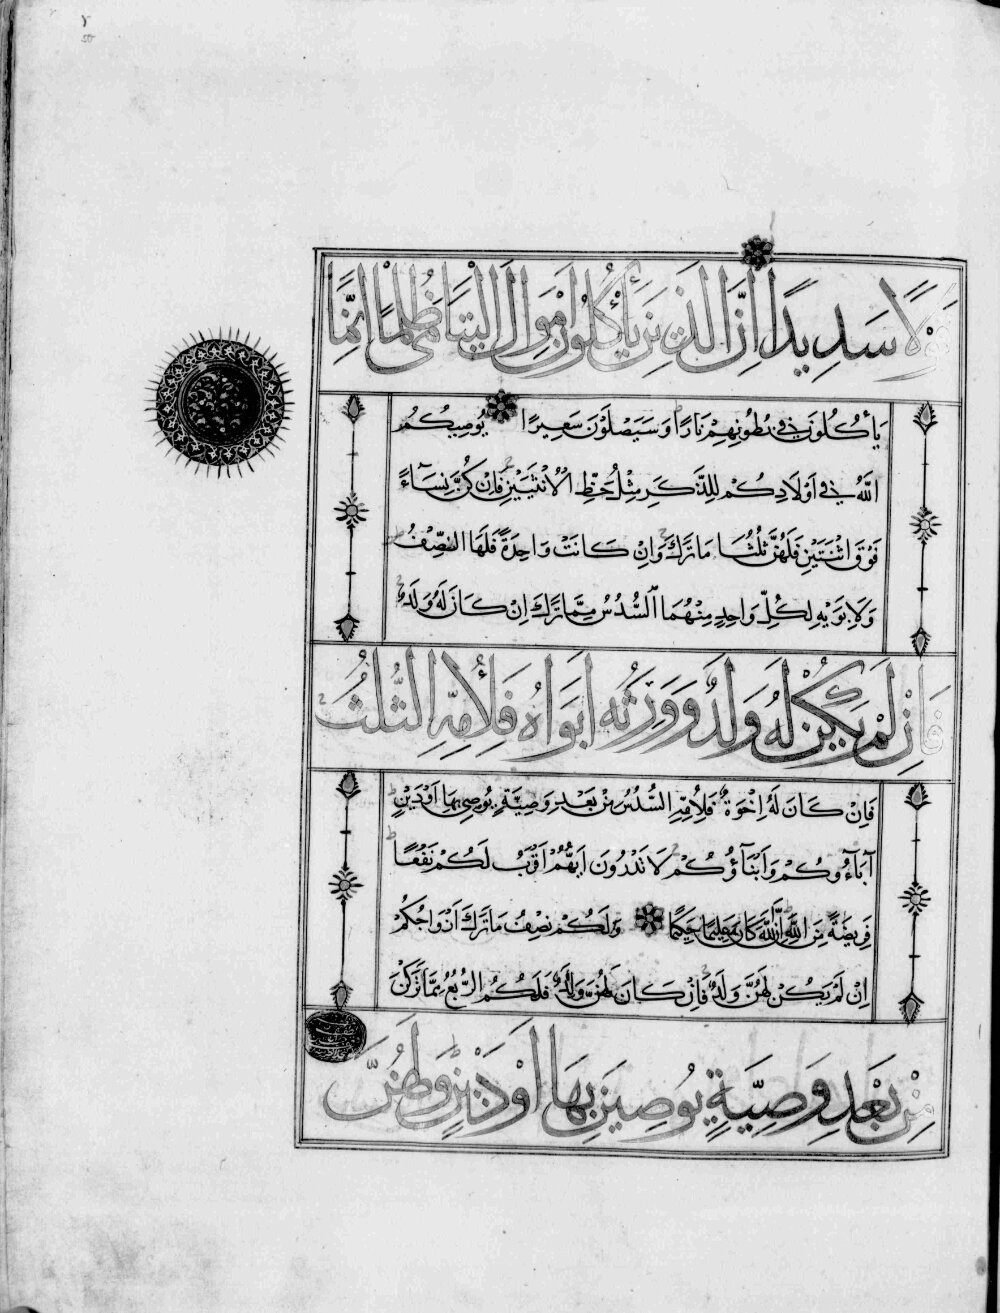 قَوْلًا سَدِيدًا اِنَّ الَّذِينَ يَأْكُلُونَ اَمْوَالَ الْيَتَامَى ظُلْمًا اِنَّمَا
يَأْكُلُونَ فِي بُطُونِهِمْ نَارًا وَسَيَصْلَوْنَ سَعِيرًا يُوصِيكُمُ
اللَّهُ فِي اَوْلَادِكُمْ لِلذَّكَرِ مِثْلُ حَظِّ الْاُنْثَيَيْنِ فَاِنْ كُنَّ نِسَاءً
فَوْقَ اثْنَتَيْنِ فَلَهُنَّ ثُلُثَا مَا تَرَكَ وَاِنْ كَانَتْ وَاحِدَةً فَلَهَا النِّصْفُ
وَلِاَبَوَيْهِ لِكُلِّ وَاحِدٍ مِنْهُمَا السُّدُسُ مِمَّا تَرَكَ اِنْ كَانَ لَهُ وَلَدٌ
فَاِنْ لَمْ يَكُنْ لَهُ وَلَدٌ وَوَرِثَهُ اَبَوَاهُ فَلِاُمِّهِ الثُّلُثُ
فَاِنْ كَانَ لَهُ اِخْوَةٌ فَلِاُمِّهِ السُّدُسُ مِنْ بَعْدِ وَصِيَّةٍ يُوصِي بِهَا اَوْ دَيْنٍ
آبَاؤُكُمْ وَاَبْنَاؤُكُمْ لَا تَدْرُونَ اَيُّهُمْ اَقْرَبُ لَكُمْ نَفْعًا
فَرِيضَةً مِنَ اللَّهِ اِنَّ اللَّهَ كَانَ عَلِيمًا حَكِيمًا وَلَكُمْ نِصْفُ مَا تَرَكَ اَزْوَاجُكُمْ
اِنْ لَمْ يَكُنْ لَهُنَّ وَلَدٌ فَاِنْ كَانَ لَهُنَّ وَلَدٌ فَلَكُمُ الرُّبُعُ مِمَّا تَرَكْنَ
مِنْ بَعْدِ وَصِيَّةٍ يُوصِينَ بِهَا اَوْ دَيْنٍ وَلَهُنَّ